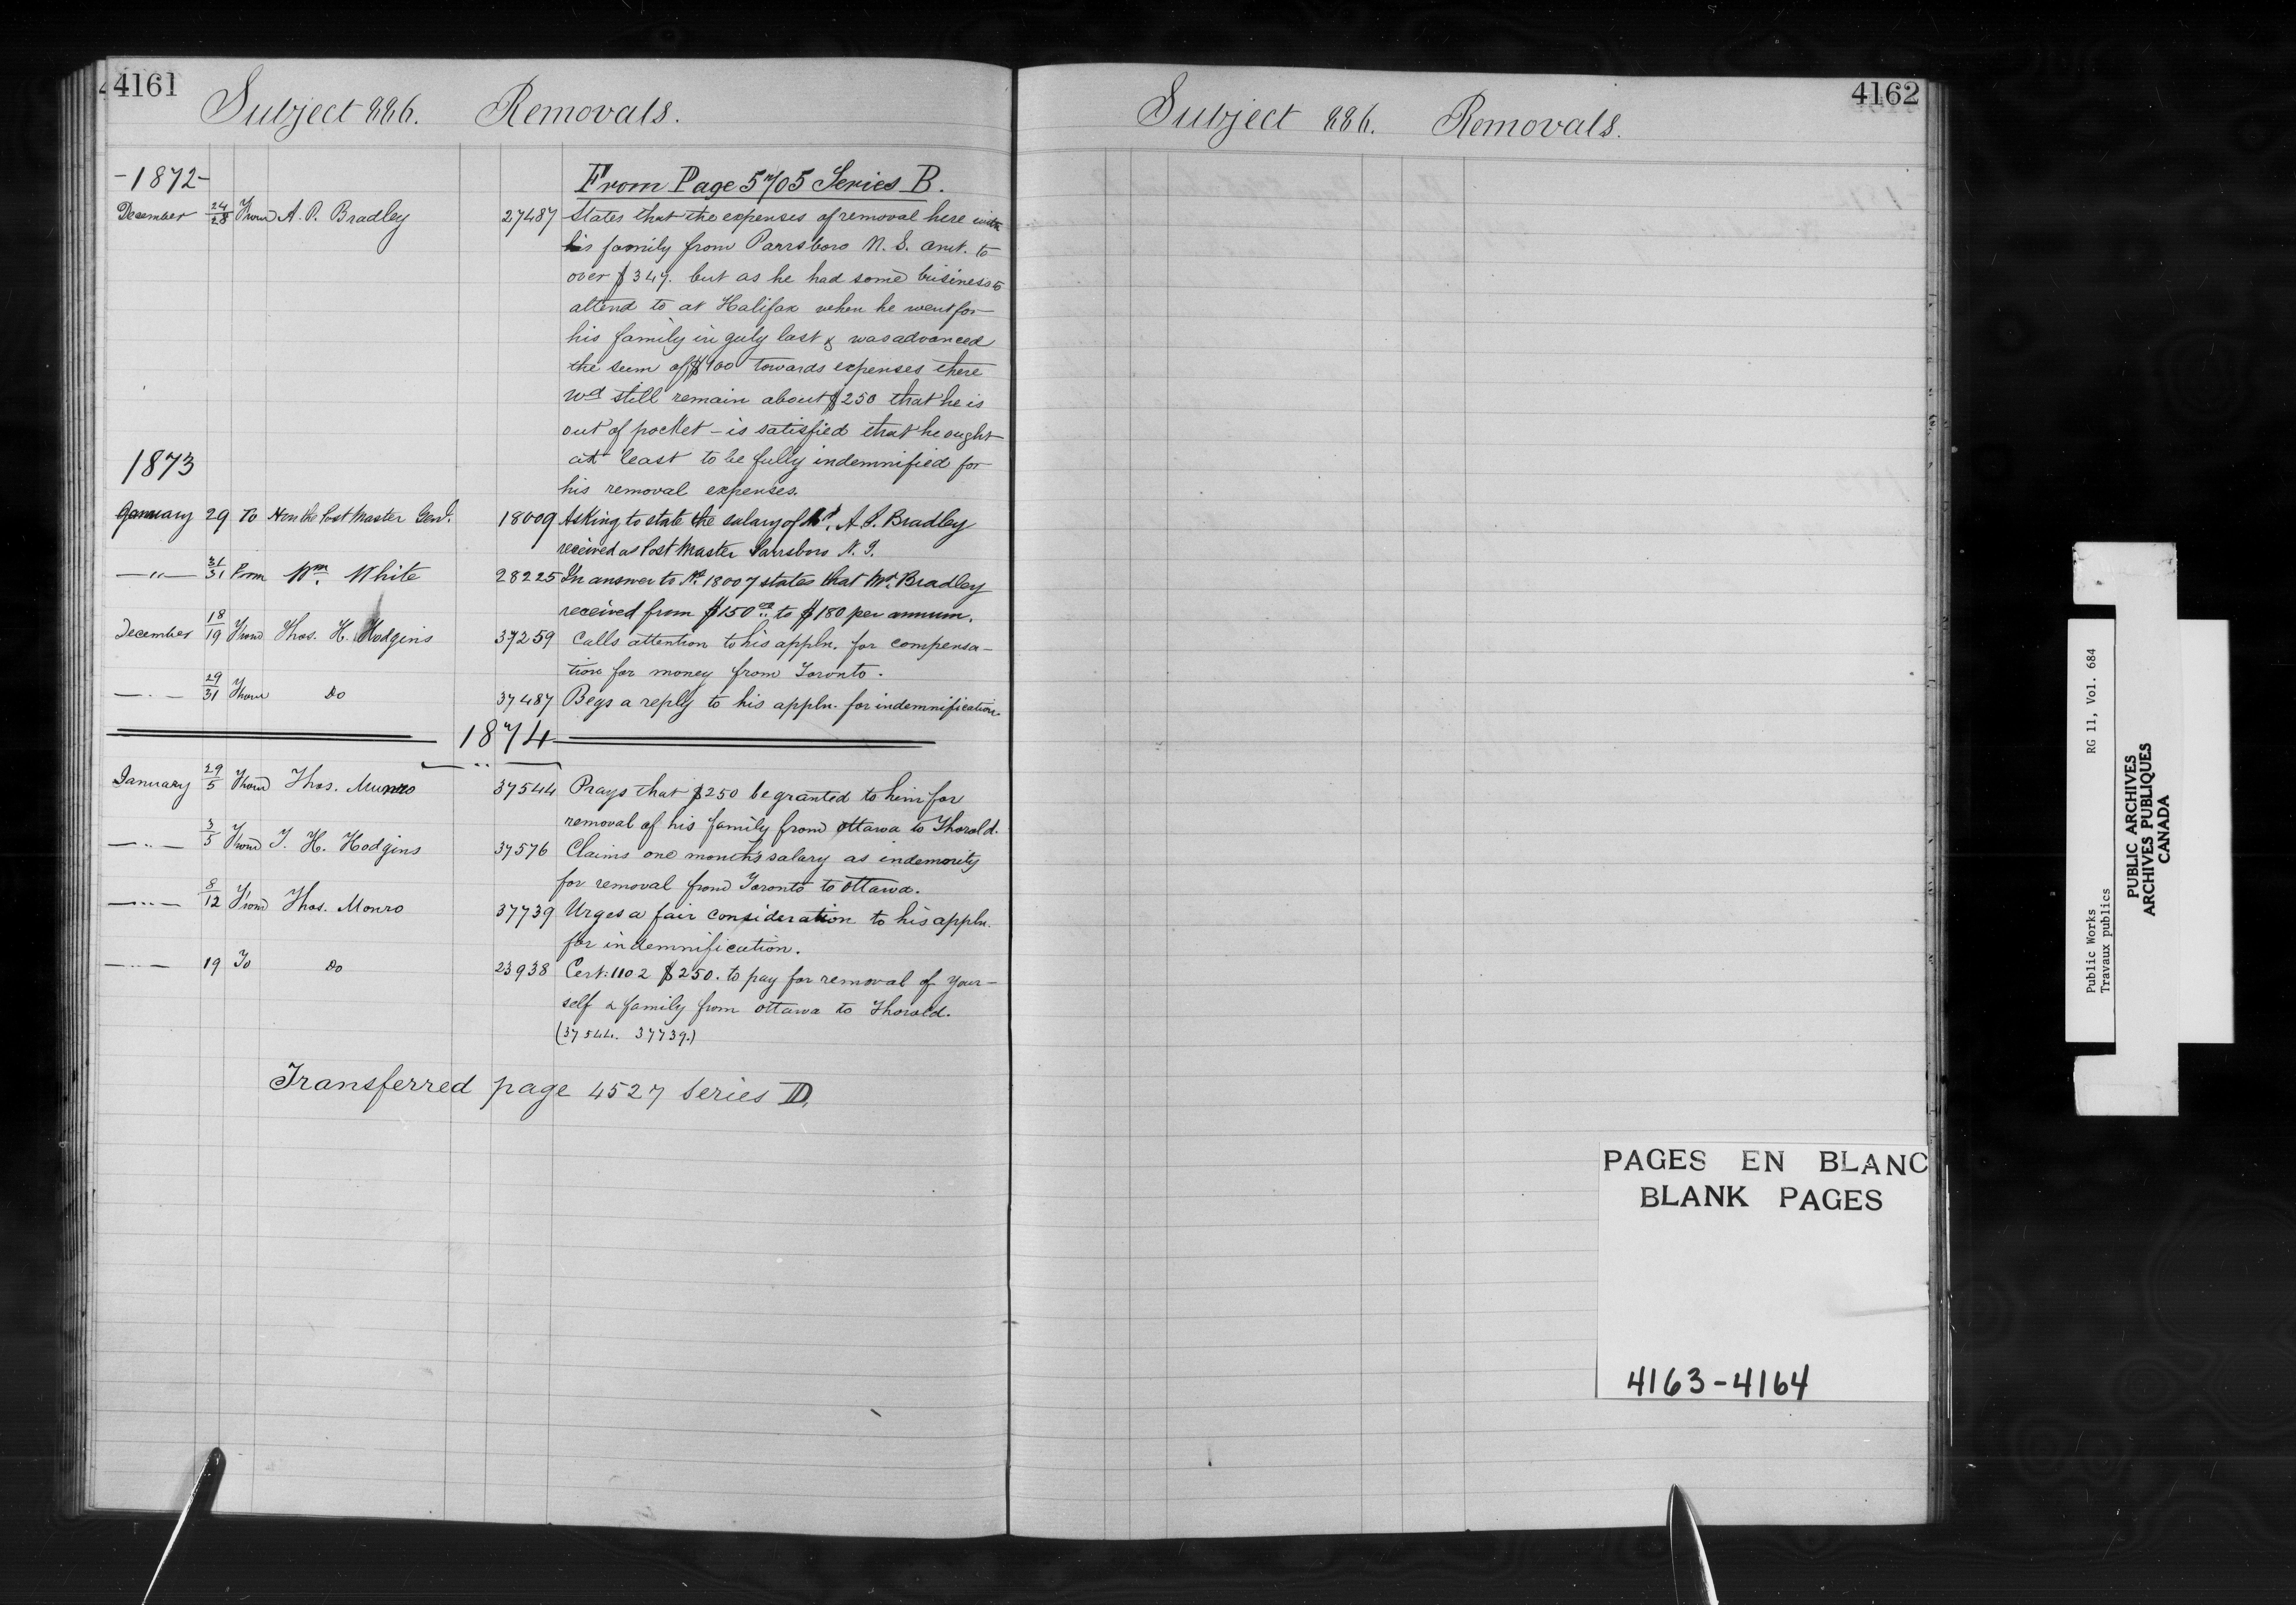 4161
Subject 886. Removals.
-1872-
From Page 5705 Series B.
December 24/28 From A. P. Bradley 27487 States that the expenses of removal here with
his family from Parrsboro N. S. amt. to
over $347. but as he had some business to
attend to at Halifax when he went for
his family in July last & was advanced
the sum of $100 towards expenses there
wd still remain about $250 that he is
out of pocket – is satisfied that he ought
at least to be fully indemnified for
his removal expenses.
1873
January 29 To Hon the Post Master Genl. 18009 Asking to state the salary of Mr. A. P. Bradley
received as Post Master Parrsboro N. S.
—"— 31/31 From Wm. White 28225 In answer to No. 18007 states that Mr. Bradley
received from $150 to $180 per annum.
December 18/19 From Thos. H. Hodgins 37259 Calls attention to his appln. for compensa-
tion for money from Toronto.
—"— 29/31 From Do 37487 Begs a reply to his appln. for indemnification.
1874
January 29/5 From Thos. Munro 37544 Prays that $250 be granted to him for
removal of his family from Ottawa to Thorold.
—"— 3/5 From T. H. Hodgins 37576 Claims one month's salary as indemnity
for removal from Toronto to Ottawa.
—"— 8/12 From Thos. Monro 37739 Urges a fair consideration to his appln.
for indemnification.
—"— 19 To Do 23938 Cert: 1102 $250. to pay for removal of your-
self & family from Ottawa to Thorold.
(37544. 37739.)
Transferred page 4527 Series D.
4162
Subject 886. Removals.
PAGES EN BLANC
BLANK PAGES
4163-4164
Public Works RG 11, Vol. 684
Travaux publics
PUBLIC ARCHIVES
ARCHIVES PUBLIQUES
CANADA